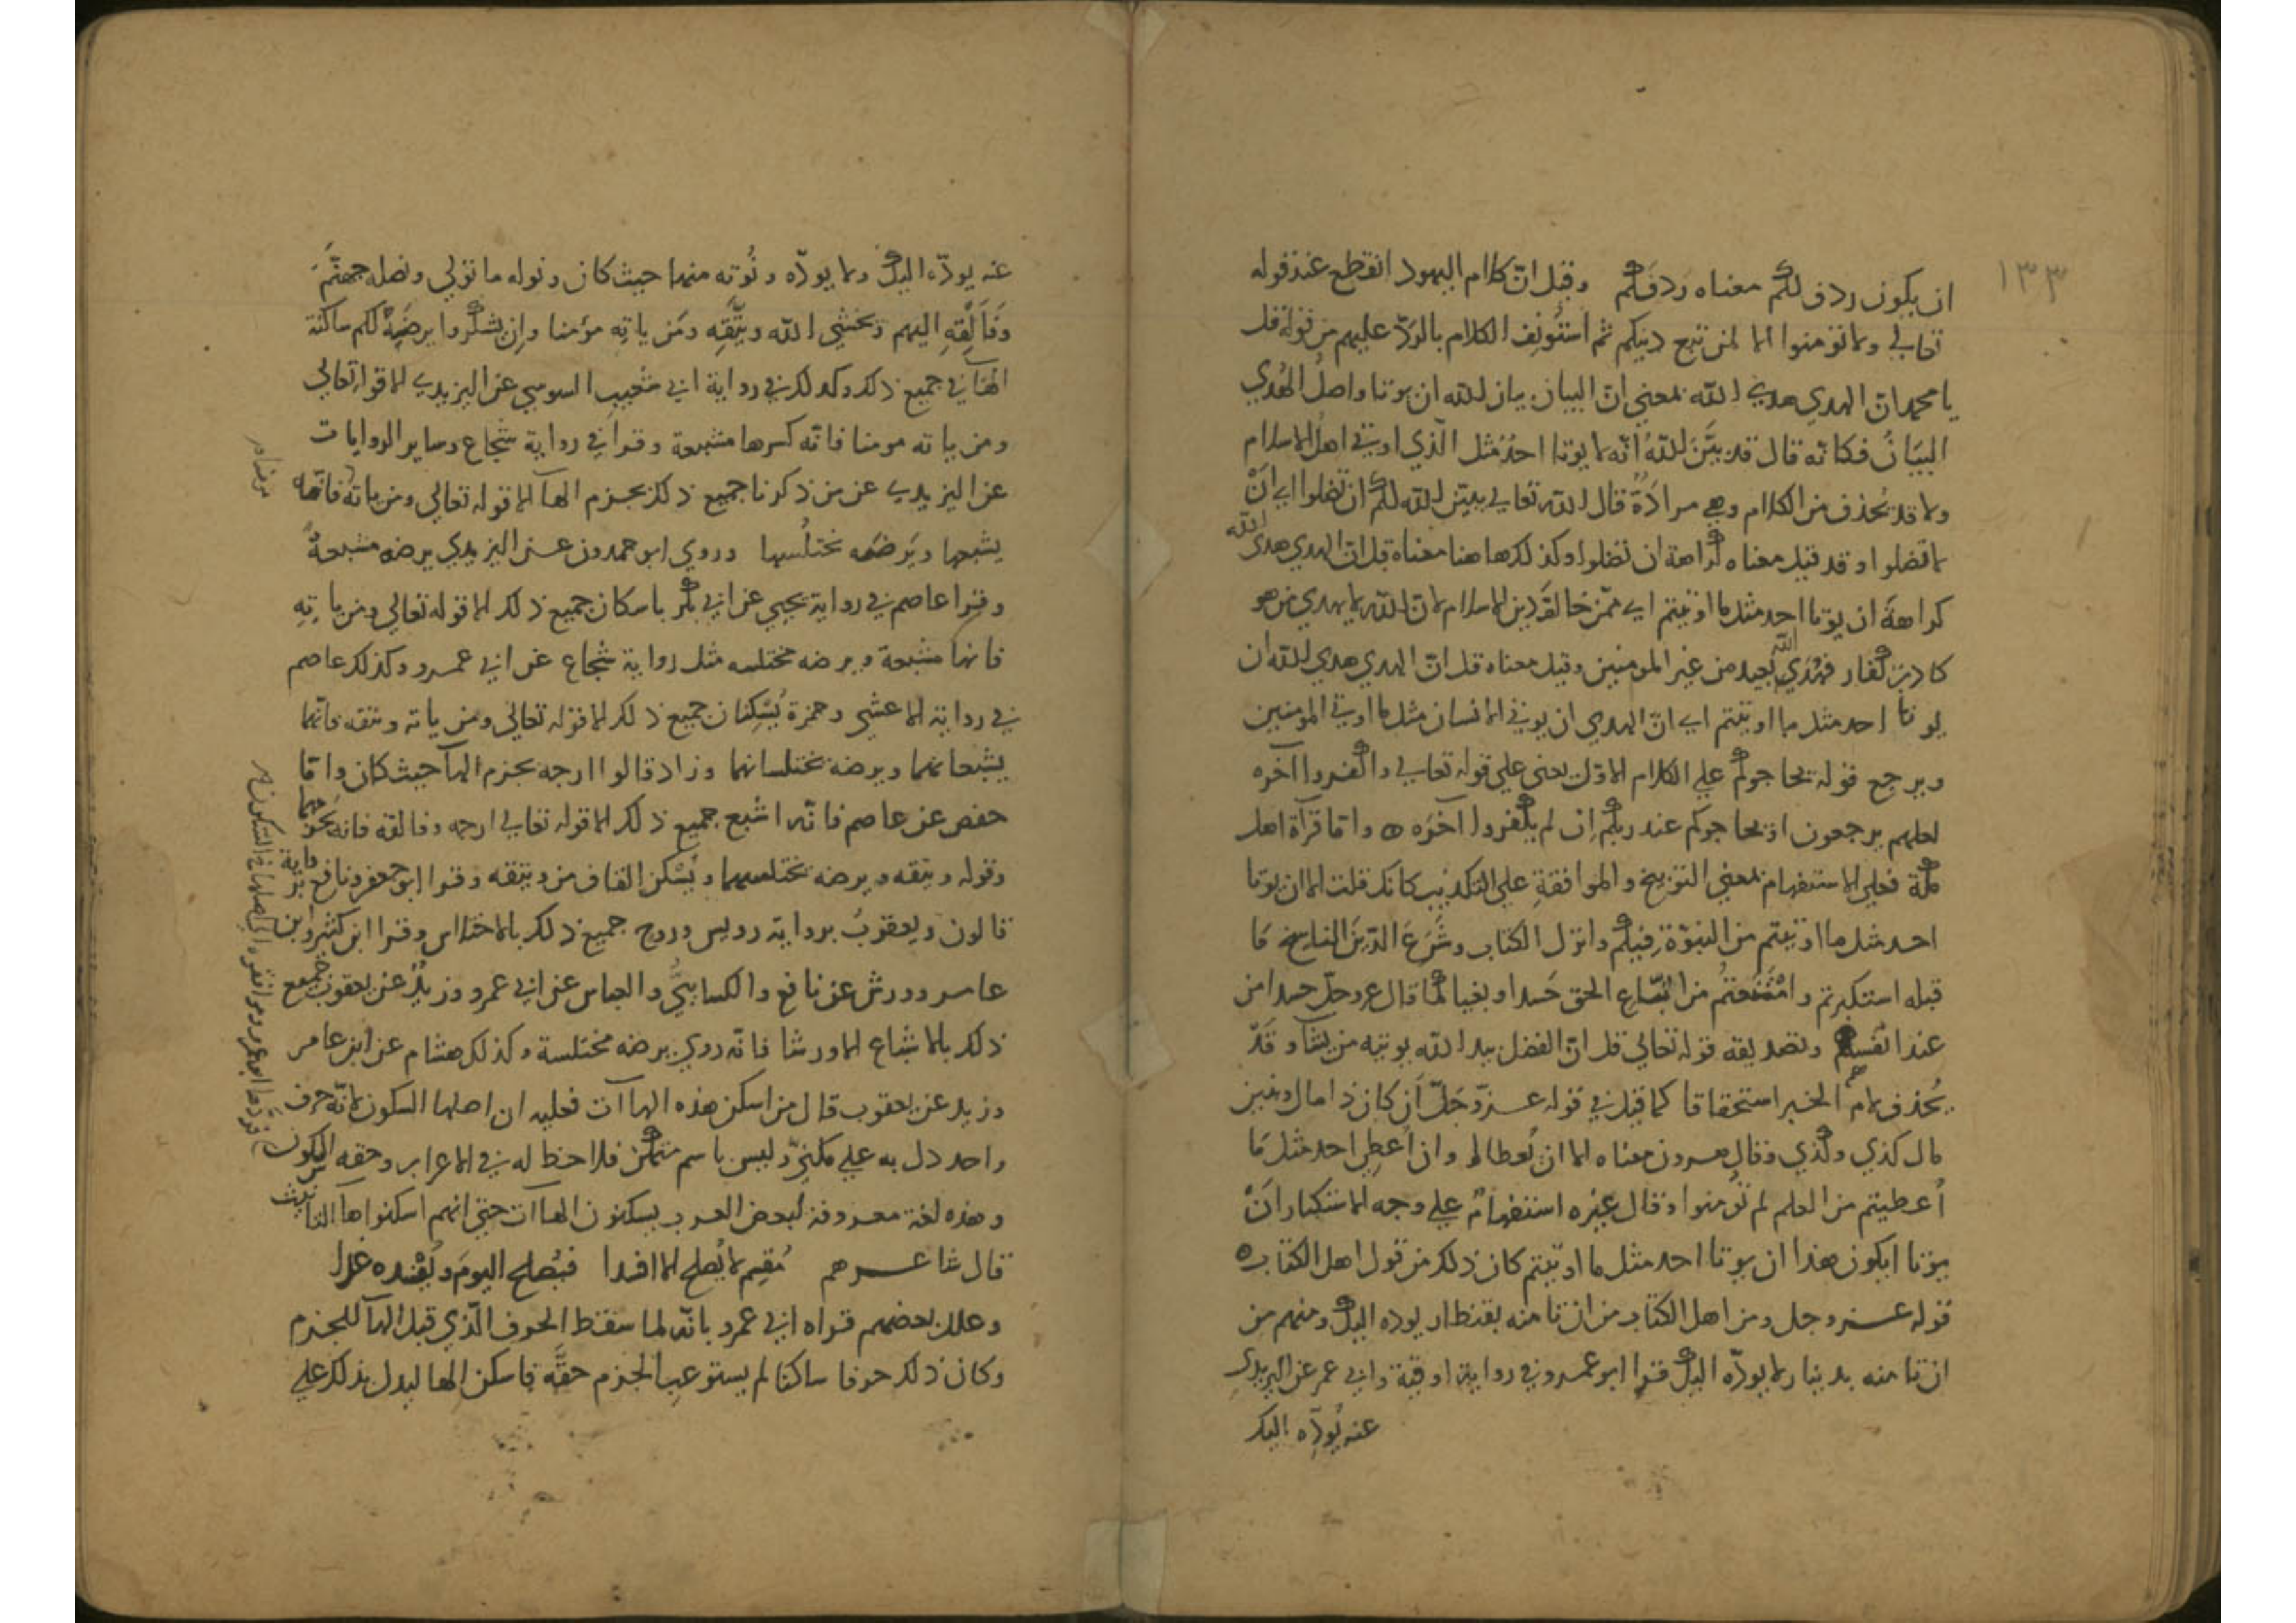 ١٣٣
ان يكون ردف لكم معناه رَدفَكم وقيل انّ كلام اليهود انقطع عند قوله
تعالى ولا تؤمنوا الا لمن تبع دينكم ثم استُونِف الكلام بالردّ عليهم من قوله قل
يا محمد انّ الهدي هدي الله بمعني انّ البيان بيان الله ان يوتا واصلُ الهُدي
البيَانُ فكانّه قال قد بيَّنَ اللهُ انّه لا يوتا احدٌ مثل الّذي اوتي اهلُ الاسلام
ولا قد تُحذف من الكلام وهي مرادَةٌ قال الله تعالي يبيّن الله لكم ان تضلوا اي انْ
لا تضلوا وقد قيل معناه كراهة ان تضلوا وكذلك هاهنا معناه قل انّ الهدي هدي الله
كراهةَ ان يوتا احد مثل ما اوتيتم اي ممّن خالفَ دين الاسلام لانّ الله لا يهدي من هو
كاذبٌ كفار فهُدَي الله بعيد من غير المومنين وقيل معناه قل انّ الهدي هدي الله ان
يوتا احد مثل ما اوتيتم اي انّ الهدي ان يوتي الانسان مثل ما اوتي المومنين
ويرجع قوله يحاجوكم علي الكلام الاوّل يعني علي قوله تعالي واكفروا آخره
لعلهم يرجعون او يحاجوكم عند ربكم اِن لم يكفروا آخره ه وامّا قرآة اهل
مكة فعلي الاستفهام بمعني التوبيخ والموافقةِ علي التكذيب كانك قلت الان يوتا
احد مثل ما اوتيتم من النبوّة فيكم وانزل الكتاب وشَرَعَ الدّينَ الناسخ مَا
قبله استكبرتم وامْتَنعتُم من اتّباع الحق حَسدا وبغيا كما قال عز وجلّ حسدا من
عند انفسهم وتصديقه قوله تعالي قل انّ الفضل بيد الله يوتيه من يشآ وقَدْ
يُحذف لام الخبر استحقاقا كما قيل في قوله عـز وجَلّ أن كان ذا مال وبنين
مال كذي وكذي وقال هرون معناه الا ان تُعطا او وان اُعطِي احد مثل مَا
اُعطيتم من العلم لم تومنوا وقال غيره استفهامٌ علي وجه الاستكبار انْ
يوتا ايكون هذا ان يوتا احد مثل ما اوتيتم كان ذلك من قول اهل الكتاب ه
قوله عـز وجل ومن اهل الكتاب من ان تامنه بقنطار يوده اليك ومنهم من
ان تامنه بدينار لا يودّه اليك قرا ابو عمرو في رواية اوقية وابي عمر عن اليزيدي
عنه يُودِّه اليك
عنه يودّه اليك ولا يودّه ونُوته منها حيث كان ونوله ما تولي ونصله جهنّمَ
وفَاَلْقِهِ اليهم ويخشي الله ويتَّقِه ومَن ياتِه مؤمنا واِن تشكروا يرضَهْ لكم ساكنة
الهآ في جميع ذلك وكذلك في رواية ابي شُعيب السوسي عن اليزيدي الا قوله تعالي
ومن ياته مومنا فانّه كسرها مشبعة وقرا في رواية شجاع وساير الروايات
عن اليزيدي عن من ذكرنا جميع ذلك بجزم الهآ الا قوله تعالي ومن ياته فانّه
يشبعها ويَرضَه يختلسها وروي ابو حمدون عـن اليزيدي يرضه مشبعةً
وقرا عاصم في رواية يحيي عن ابي بكر باسكان جميع ذلك الا قوله تعالي ومن ياتِهِ
فانها مشبعة ويرضه مختلسه مثل رواية شجاع عن ابي عمـرو وكذلك عاصم
في رواية الاعشي وحمزة يُسكِنان جميع ذلك الا قوله تعالي ومن ياته ويتقه فانهما
يشبعانهما ويرضه يختلسانهما وزاد قالوا ارجه بجزم الهآ حيث كان وامّا
حفص عن عاصم فانّه اشبع جميع ذلك الا قوله تعالي ارجه وفالقه فانه
وقوله ويتقه ويرضه يختلسهما ويُسْكن القاف من ويتقه وقرا ابو جعفر ونافع برواية
قالون ويعقوبُ برواية رويس وروح جميع ذلك بالاختلاس وقرا ابن كثير وابن
عامر وورش عن نافع والكسايّي والعباس عن ابي عمرو وزيدٌ عن يعقوب جميع
ذلك بالاشباع الا ورشا فانّه روي يرضه مختلسة وكذلك هشام عن ابن عامر
وزيد عن يعقوب قال من اسكن هذه الهاآت فعليه ان اصلها السكون لانّه حرف
واحد دل به علي مكنيّ وليس باسم متمكن فلا حظ له في الاعراب وحقه السكون
وهذه لغة معروفة لبعض العرب يسكنون الهاآت حتي انهم اسكنوا هآ التانيث
قال شاعـرهم مُقيم لا يُصلح الا افسدا فيُصلح اليومَ ويُفْسِده غدا
وعلل بعضهم قراه ابي عمرو بانّه لما سقط الحرف الّذي قبل الهآ للجزم
وكان ذلك حرفا ساكنا لم يستوعب الجزم حقَّه فاسكن الها ليدل بذلك علي